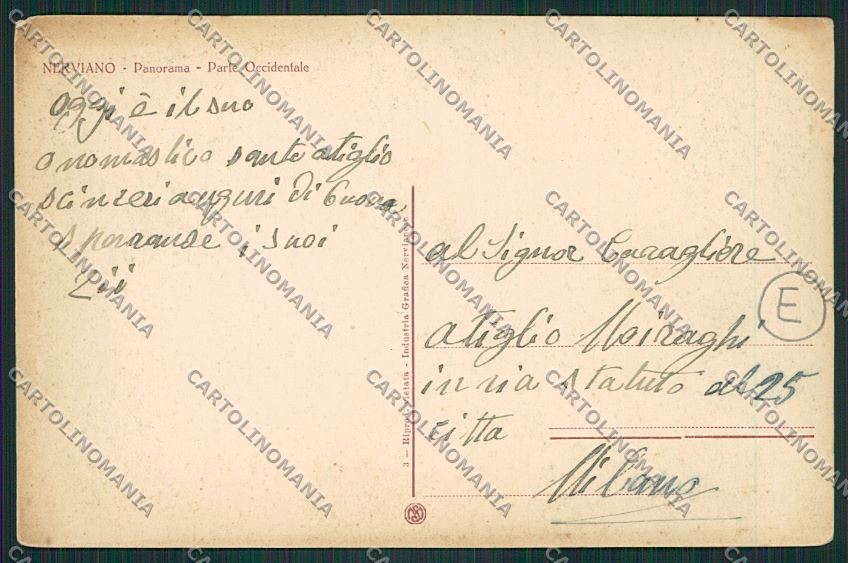 NERVIANO - Panorama - Parte Occidentale
oggi è il suo
onomastico sante atiglio
scinseri auguri di buona
speranse i suoi
Zii
3 — Riprod. vietata - Industria Grafica Nervianese
al Signor Cavagliere
atiglio Moiraghi
in via statuto al 25
città
Milano
E
CARTOLINOMANIA